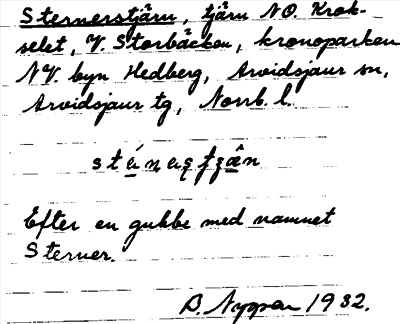 Sternerstjärn, tjärn NO. Krok-
selet, V. Storbäcken, kronoparken
NV. byn Hedberg, Arvidsjaur sn,
Arvidsjaur tg, Norrb. l.
Efter en gubbe med namnet
Sterner.
B. Nyman 1932.